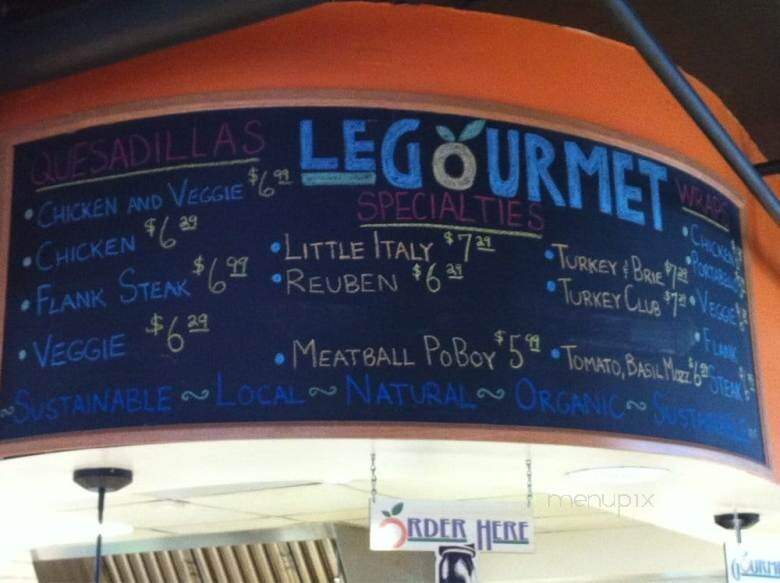 QUESADILLAS
• CHICKEN AND VEGGIE $6.99
• CHICKEN $6.29
• FLANK STEAK $6.99
• VEGGIE $6.29
LEGOURMET
SPECIALTIES
• LITTLE ITALY $7.29
• REUBEN $6.29
• MEATBALL POBOY $5.99
• TURKEY & BRIE $7.29
• TURKEY CLUB
• TOMATO, BASIL MOZZ
WRAPS
• CHICKEN
• VEGGIE
• FLANK
STEAK
~SUSTAINABLE ~ LOCAL ~ NATURAL ~ ORGANIC ~
ORDER HERE
menupix